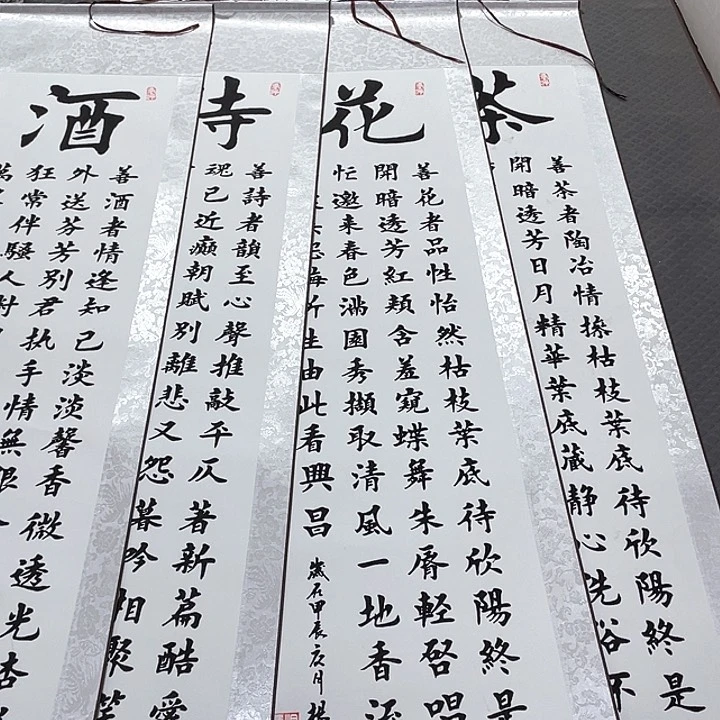 茶
善茶者陶冶情操枯枝葉底待欣陽終是
開暗透芳日月精華葉底藏静心洗浴不
花
善花者品性怡然枯枝葉底待欣陽終是
開暗透芳紅頬含羞窺蝶舞朱脣輕啓唱
忙邀来春色滿園秀擷取清風一地香
所生由此看興昌
歲在甲辰夏月楊
寺
善詩者韻至心聲推敲平仄著新篇酷愛
魂已近癲朝賦別離悲又怨暮吟相聚笑
酒
善酒者情逢知己淡淡馨香微透光杏
外送芬芳別君执手情無限
狂常伴騷人